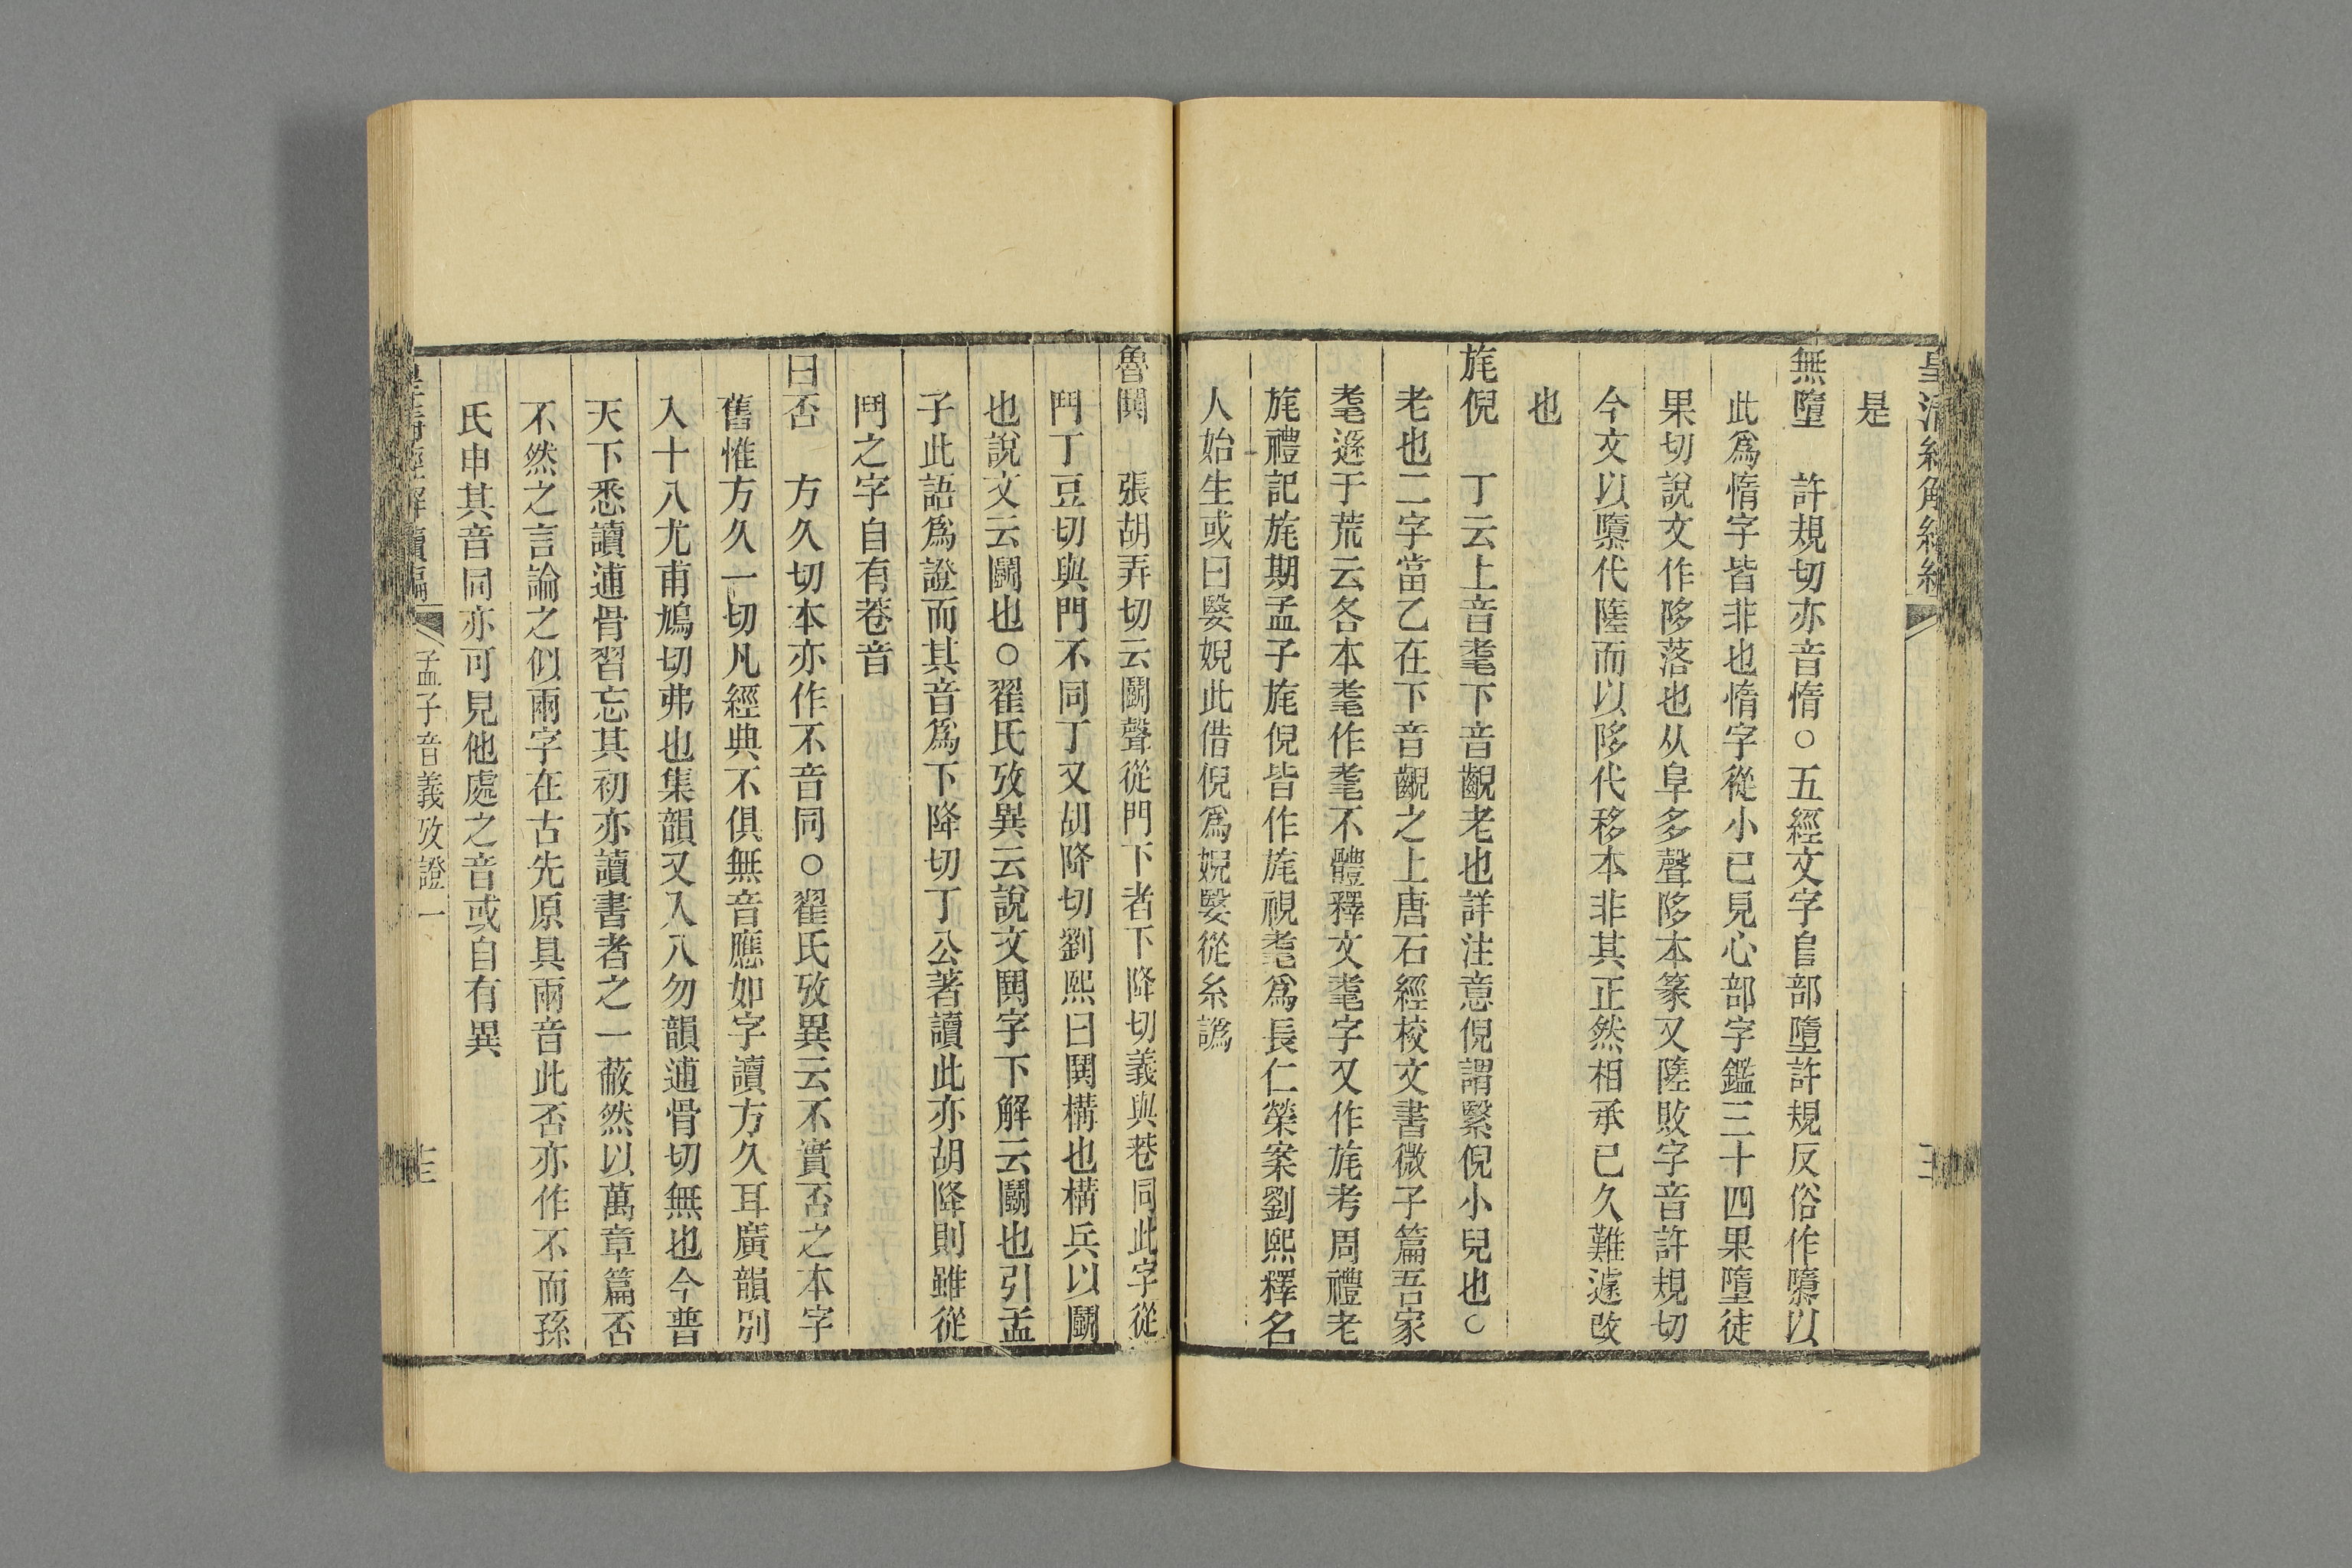 皇清經解續編
是
無墮　許規切亦音惰○五經文字𨸏部墮許規反俗作隳以
此爲惰字皆非也惰字從小已見心部字鑑三十四果墮徒
果切說文作陊落也从阜多聲陊本篆又隓敗字音許規切
今文以隳代隓而以陊代移本非其正然相承已久難遽改
也
旄倪　丁云上音耄下音齯老也詳注意倪謂繄倪小兒也○
老也二字當乙在下音齯之上唐石經校文書微子篇吾家
耄遜于荒云各本耄作耄不體釋文耄字又作旄考周禮老
旄禮記旄期孟子旄倪皆作旄視耄爲長仁榮案劉熙釋名
人始生或曰嫛婗此借倪爲婗嫛從糸譌
魯鬨　張胡弄切云鬭聲從門下者下降切義與巷同此字從
鬥丁豆切與門不同丁又胡降切劉熙曰鬨構也構兵以鬭
也說文云鬭也○翟氏攷異云說文鬨字下解云鬭也引孟
子此語爲證而其音爲下降切丁公著讀此亦胡降則雖從
鬥之字自有巷音
曰否　方久切本亦作不音同○翟氏攷異云不實否之本字
舊惟方久一切凡經典不俱無音應如字讀方久耳廣韻別
入十八尤甫鳩切弗也集韻又入八勿韻逋骨切無也今普
天下悉讀逋骨習忘其初亦讀書者之一蔽然以萬章篇否
不然之言論之似兩字在古先原具兩音此否亦作不而孫
氏申其音同亦可見他處之音或自有異
皇清經解續編　孟子音義攷證一　十三